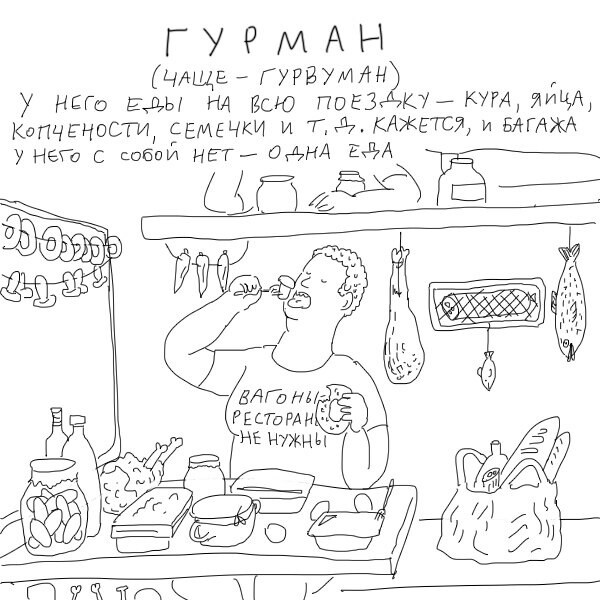 ГУРМАН
(ЧАЩЕ – ГУРВУМАН)
У НЕГО ЕДЫ НА ВСЮ ПОЕЗДКУ – КУРА, ЯЙЦА,
КОПЧЕНОСТИ, СЕМЕЧКИ И Т. Д. КАЖЕТСЯ, И БАГАЖА
У НЕГО С СОБОЙ НЕТ – ОДНА ЕДА
ВАГОНЫ-
РЕСТОРАН
НЕ НУЖНЫ